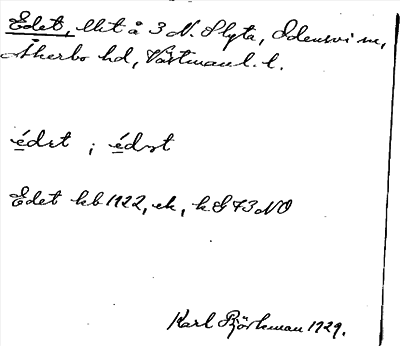 Edet, lht å 3 N. Slyta, Odensvi sn,
Åkerbo hd, Västmanl. l.
édet ; édet
Edet kb 1922, ek, k G 73 NO
Karl Björkman 1929.